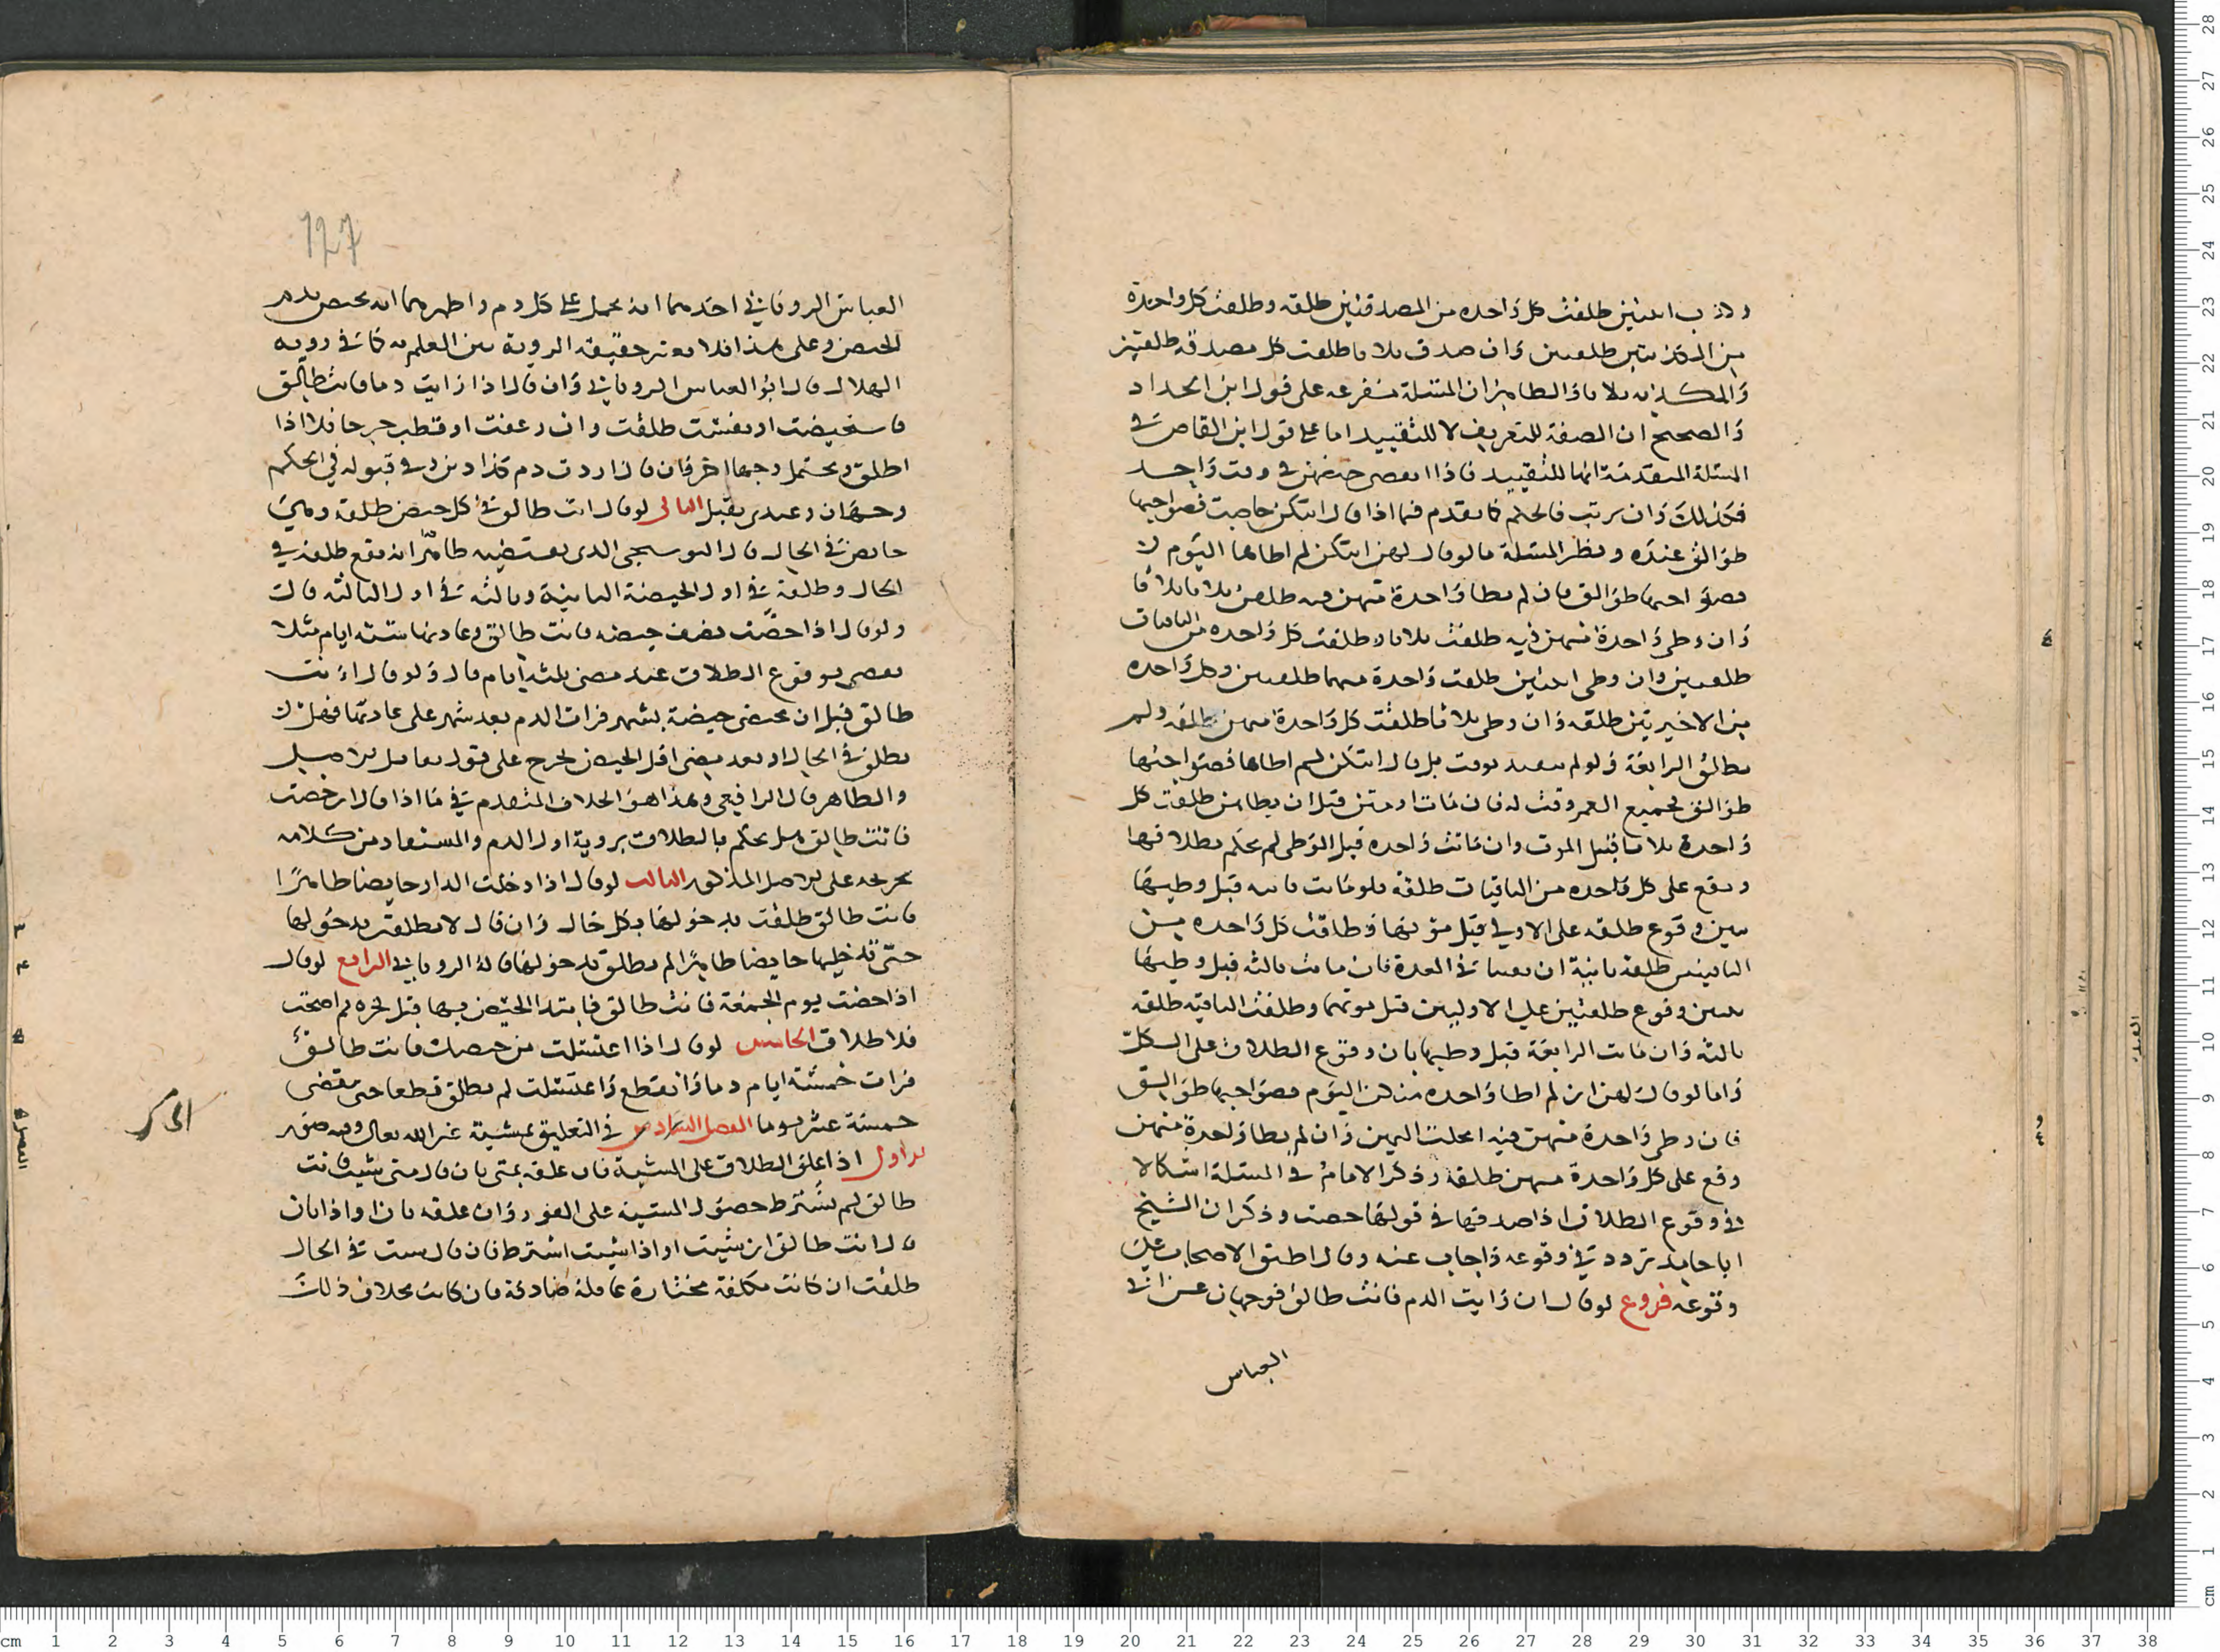 وكذب اثنتين طلقت كل واحدة من المصدقتين طلقة وطلقت كل واحدة
من المكذبتين طلقتين وان صدق ثلاثا طلقت كل مصدقة طلقتين
والمكذبة ثلاثا والظاهر ان المسئلة مفرعة على قول ابن الحداد
والصحيح ان الصفة للتعريف لا للتقييد اما على قول ابن القاص في
المسئلة المتقدمة انها للتقييد فاذا حيضهن في وقت واحد
فكذلك وان ترتب فالحكم كما تقدم فيما اذا قال ايتكن حاضت فصواحبها
طوالق عنده ونظير المسئلة ما لو قال لهن ايتكن لم اطاها اليوم
فصواحبها طوالق فان لم يطا واحدة منهن فيه طلقن ثلاثا ثلاثا
وان وطى واحدة منهن فيه طلقت ثلاثا وطلقت كل واحدة من الباقيات
طلقتين وان وطى اثنتين طلقت واحدة منهما طلقتين وكل واحدة
من الاخيرتين طلقة وان وطى ثلاثا طلقت كل واحدة منهن طلقة ولم
تطلق الرابعة ولو لم يقيد بوقت بل قال ايتكن لم اطاها فصواحبها
طوالق فجميع العمر وقت له فان مات او متن قبل ان يطاهن طلقت كل
واحدة ثلاثا قبيل الموت وان ماتت واحدة قبل الوطى لم يحكم بطلاقها
ويقع على كل واحدة من الباقيات طلقة فلو ماتت ثانية قبل وطيها
تبين وقوع طلقة على الاولى قبل موتها وطلقت كل واحدة من
الباقيتين طلقة ثانية ان بقيتا في العدة فان ماتت ثالثة قبل وطيها
تبين وقوع طلقتين على الاوليين قبل موتهما وطلقت الباقية طلقة
ثالثة وان ماتت الرابعة قبل وطيها بان وقوع الطلاق على الكل
واما لو قال لهن ان لم اطا واحدة منكن اليوم فصواحبها طوالق
فان وطى واحدة منهن فيه انحلت اليمين وان لم يطا واحدة منهن
وقع على كل واحدة منهن طلقة وذكر الامام في المسئلة اشكالا
في وقوع الطلاق اذا صدقها في قولها حضت وذكر ان الشيخ
ابا حامد تردد في وقوعه واجاب عنه وقال اطبق الاصحاب على
وقوعه فروع لو قال ان رايت الدم فانت طالق فوجهان عن ابي
العباس
127
العباس الروياني احدهما انه يحمل على كل دم واظهرهما انه يختص بدم
الحيض وعلى هذا فلا يعتبر حقيقة الروية بين العلم به كما في روية
الهلال قال ابو العباس الروياني وان قال اذا رايت دما فانت طالق
فاستحيضت او نفست طلقت وان رعفت او قطب جرحا فلا اذا
اطلق ويحتمل وجها اخر فان قال اردت دم كذا دين وفي قبوله في الحكم
وجهان وعندي يقبل الثاني لو قال انت طالق في كل حيض طلقة وهي
حايض في الحال قال البوسنجي الذي يقتضيه ظاهرا انه تقع طلقة في
الحال وطلقة في اول الحيضة الثانية وثالثة في اول الثالثة قال
ولو قال اذا حضت نصف حيضة فانت طالق وعادتها ستة ايام مثلا
بوقوع الطلاق عند مضي ثلثة ايام قال ولو قال انت
طالق قبل ان تحيضي حيضة بشهر فرات الدم بعد شهر على عادتها فهل
تطلق في الحال او بعد مضي اقل الحيض تخرج على قول
والظاهر قال الرافعي وهذا هو الخلاف المتقدم في ما اذا قال ان حضت
فانت طالق هل يحكم بالطلاق بروية اول الدم والمستفاد من كلامه
تخريجه على الاصل المذكور الثالث لو قال اذا دخلت الدار حايضا طاهرا
فانت طالق طلقت بدخولها بكل حال وان قال لا تطلقت بدخولها
حتى تدخليها حايضا طاهرا لم تطلق بدخولها قاله الروياني الرابع لو قال
اذا حضت يوم الجمعة فانت طالق فابتدا الحيض بها قبل فجره ثم اضحت
فلا طلاق الخامس لو قال اذا اغتسلت من حيضك فانت طالق
فرات خمسة ايام دما وانقطع واغتسلت لم تطلق قطعا حتى تقضى
خمسة عشر يوما الفصل السادس في التعليق بمشية غير الله تعالى وفيه صور
الاول اذا علق الطلاق على المشية فان علقه بمتى بان قال متى شيت فانت
طالق لم يشترط حصول المشية على الفور وان علقه بان او اذا بان
قال انت طالق ان شيت او اذا شيت اشترط فان قال شيت في الحال
طلقت ان كانت مكلفة مختارة عاملة صادقة فان كانت بخلاف ذلك